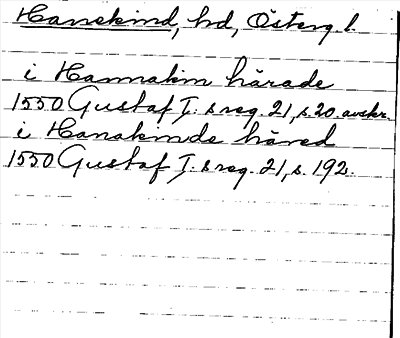 Hanekind, hd, Österg. l.
i Hannakin härade
1550 Gustaf I:s reg. 21, s. 20. avskr.
i Hanakinde häred
1550 Gustaf I:s reg. 21, s. 192.